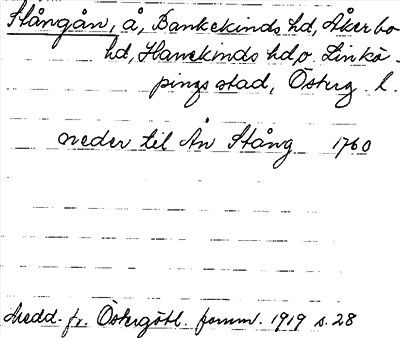 Stångån, å, Bankekinds hd, Åkerbo
hd, Hanekinds hd, o. Linkö-
pings stad, Österg. l.
neder til Ån Stång 1760
Medd. fr. Östergötl. fornm. 1919 s. 28